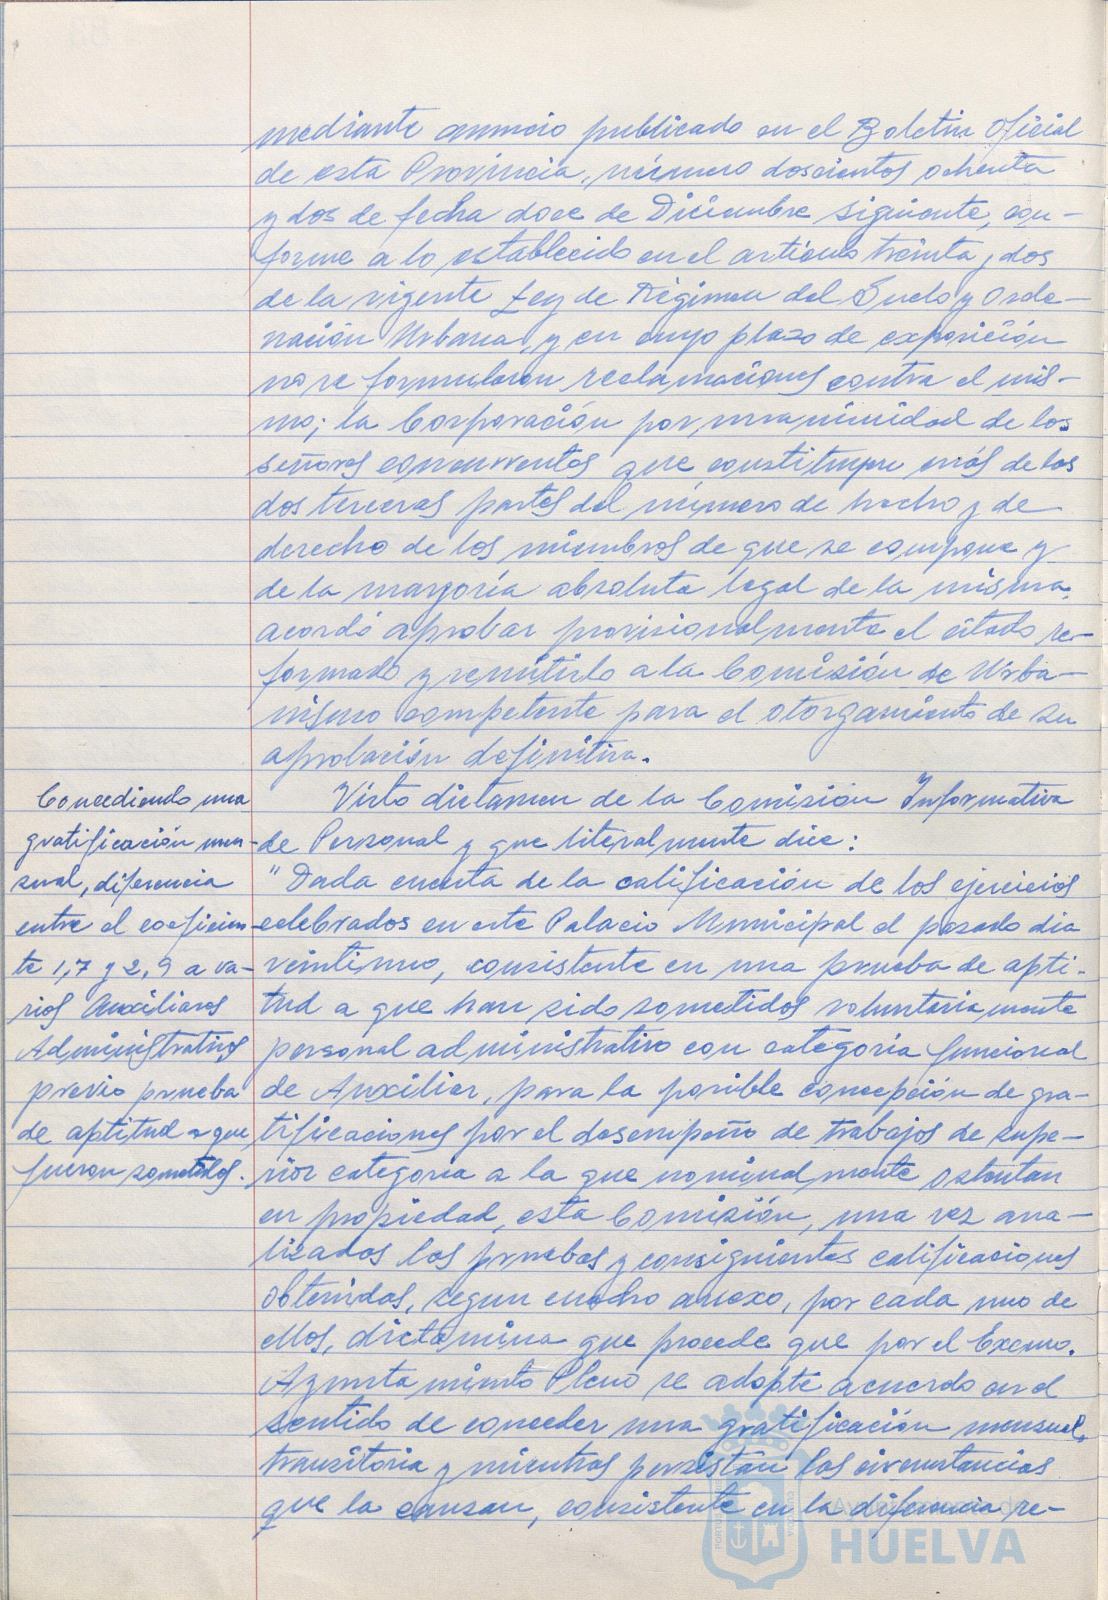 mediante anuncio publicado en el Boletin Oficial
de esta Provincia, número doscientos ochenta
y dos de fecha doce de Diciembre siguiente, con-
forme a lo establecido en el artículo treinta y dos
de la vigente Ley de Régimen del Suelo y Orde-
nación Urbana, y en cuyo plazo de exposición
no se formularon reclamaciones contra el mis-
mo; la Corporación por unanimidad de los
señores concurrentes que constituyen más de las
dos terceras partes del número de hecho y de
derecho de los miembros de que se compone y
de la mayoría absoluta legal de la misma,
acordó aprobar provisionalmente el citado re-
formado y remitirlo a la Comisión de Urba-
nismo competente para el otorgamiento de su
aprobación definitiva.
Concediendo una
gratificación men-
sual, diferencia
entre el coeficien-
te 1,7 y 2,9 a va-
rios Auxiliares
Administrativos
previo prueba
de aptitud a que
fueron sometidos.
Visto dictamen de la Comisión Informativa
de Personal y que literalmente dice:
"Dada cuenta de la calificación de los ejercicios
celebrados en este Palacio Municipal el pasado dia
veintiuno, consistente en una prueba de apti-
tud a que han sido sometidos voluntariamente
personal administrativo con categoria funcional
de Auxiliar, para la posible concepción de gra-
tificaciones por el desempeño de trabajos de supe-
rior categoria a la que nominalmente ostentan
en propiedad, esta Comisión, una vez ana-
lizados los pruebas y consiguientes calificaciones
obtenidas, segun cuadro anexo, por cada uno de
ellos, dictamina que procede que por el Excmo.
Ayuntamiento Pleno se adopte acuerdo en el
sentido de conceder una gratificación mensual,
transitoria y mientras persistan las circunstancias
que la causan, consistente en la diferencia re-
Ayuntamiento de
HUELVA